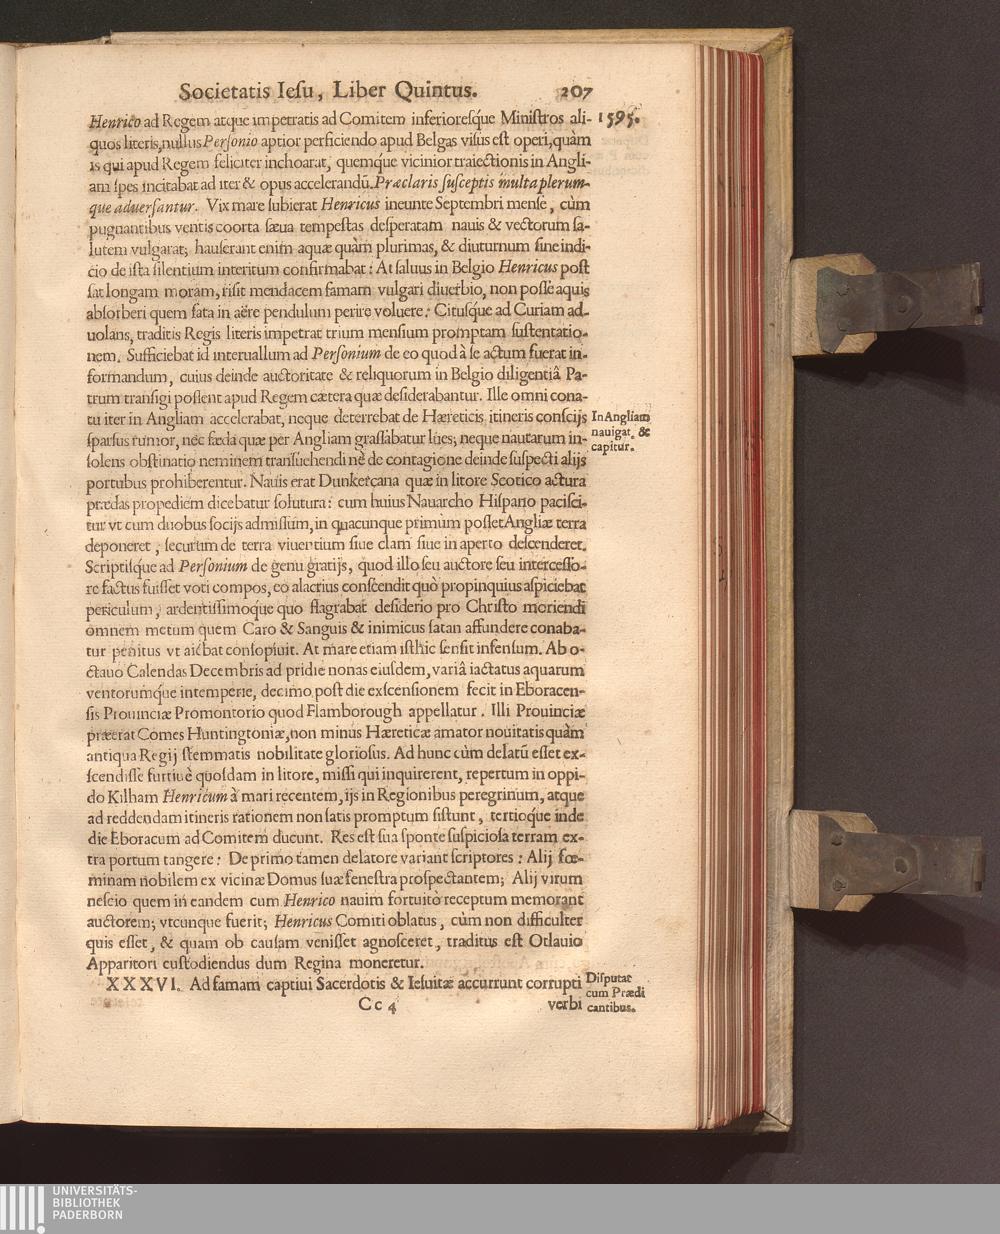 Societatis Iesu, Liber Quintus. 207
Henrico ad Regem atque impetratis ad Comitem inferioresq́ue Ministros ali- 1595.
quos literis, nullus Personio aptior perficiendo apud Belgas visus est operi, quàm
is qui apud Regem feliciter inchoarat, quemq́ue vicinior traiectionis in Angli-
am spes incitabat ad iter & opus accelerandū. Præclaris susceptis multa plerum-
que aduersantur. Vix mare subierat Henricus ineunte Septembri mense, cùm
pugnantibus ventis coorta sæua tempestas desperatam nauis & vectorum sa-
lutem vulgarat; hauserant enim aquæ quàm plurimas, & diuturnum sine indi-
cio de ista silentium interitum confirmabat: At saluus in Belgio Henricus post
sat longam moram, risit mendacem famam vulgari diuerbio, non posse aquis
absorberi quem fata in aëre pendulum perire voluere: Citusq́ue ad Curiam ad-
uolans, traditis Regis literis impetrat trium mensium promptam sustentatio-
nem. Sufficiebat id interuallum ad Personium de eo quod à se actum fuerat in-
formandum, cuius deinde auctoritate & reliquorum in Belgio diligentiâ Pa-
trum transigi possent apud Regem cætera quæ desiderabantur. Ille omni cona-
tu iter in Angliam accelerabat, neque deterrebat de Hæreticis itineris conscijs
In Angliam
nauigat, &
capitur.
sparsus rumor, nec fæda quæ per Angliam grassabatur lues; neque nautarum in-
solens obstinatio neminem transuehendi nè de contagione deinde suspecti alijs
portubus prohiberentur. Nauis erat Dunkercana quæ in litore Scotico actura
prædas propediem dicebatur solutura: cum huius Nauarcho Hispano pacisci-
tur vt cum duobus socijs admissum, in quacunque primùm posset Angliæ terra
deponeret, securum de terra viuentium siue clam siue in aperto descenderet.
Scriptisque ad Personium de genu gratijs, quod illo seu auctore seu intercesso-
re factus fuisset voti compos, eo alacrius conscendit quò propinquius aspiciebat
periculum, ardentissimoque quo flagrabat desiderio pro Christo moriendi
omnem metum quem Caro & Sanguis & inimicus satan affundere conaba-
tur penitus vt aiebat consopiuit. At mare etiam isthic sensit infensum. Ab o-
ctauo Calendas Decembris ad pridie nonas eiusdem, variâ iactatus aquarum
ventorumq́ue intemperie, decimo post die exscensionem fecit in Eboracen-
sis Prouinciæ Promontorio quod Flamborough appellatur. Illi Prouinciæ
præerat Comes Huntingtoniæ, non minùs Hæreticæ amator nouitatis quàm
antiqua Regij stemmatis nobilitate gloriosus. Ad hunc cùm delatū esset ex-
scendisse furtiuè quosdam in litore, missi qui inquirerent, repertum in oppi-
do Kilham Henricum à mari recentem, ijs in Regionibus peregrinum, atque
ad reddendam itineris rationem non satis promptum sistunt, tertioq́ue inde
die Eboracum ad Comitem ducunt. Res est sua sponte suspiciosa terram ex-
tra portum tangere: De primo tamen delatore variant scriptores: Alij fœ-
minam nobilem ex vicinæ Domus suæ fenestra prospectantem; Alij virum
nescio quem in eandem cum Henrico nauim fortuitò receptum memorant
auctorem; vtcunque fuerit; Henricus Comiti oblatus, cùm non difficulter
quis esset, & quam ob causam venisset agnosceret, traditus est Otlauio
Apparitori custodiendus dum Regina moneretur.
XXXVI. Ad famam captiui Sacerdotis & Iesuitæ accurrunt corrupti
Disputat
cum Prædi
cantibus.
Cc 4 verbi
UNIVERSITÄTS-
BIBLIOTHEK
PADERBORN